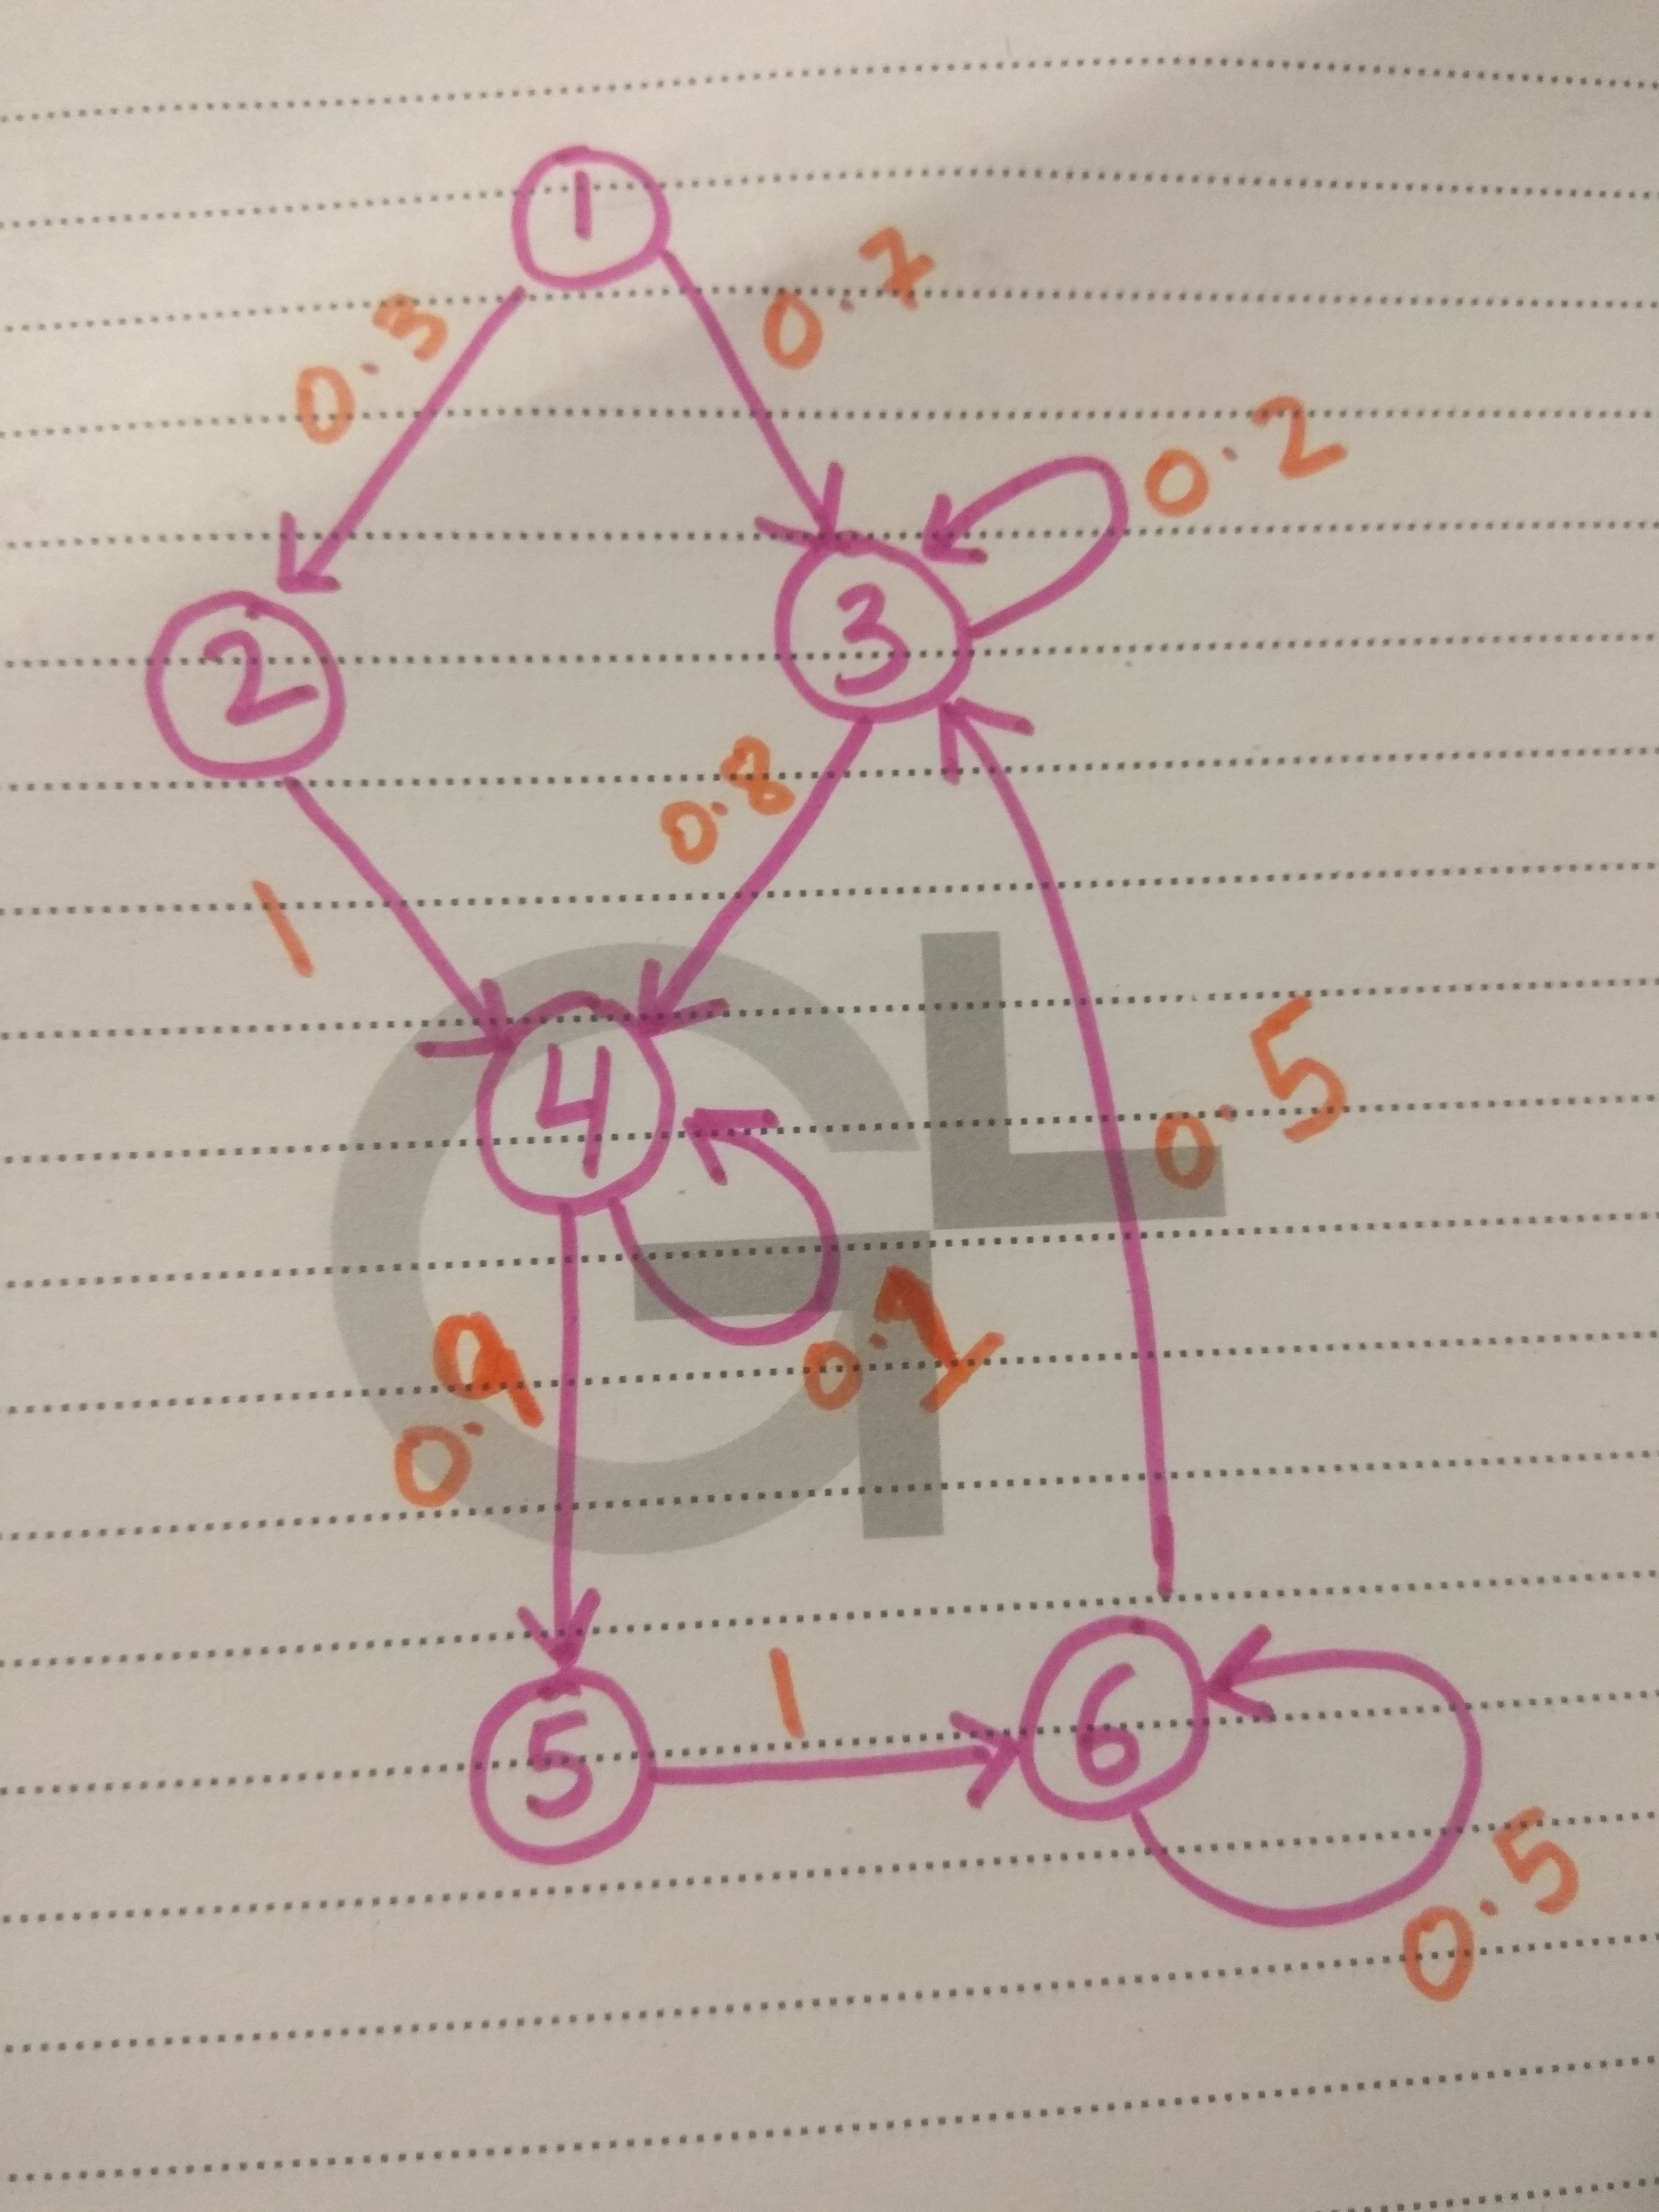 1
0.3
0.7
0.2
2
3
0.8
1
4
0.5
0.9
0.1
5
1
6
0.5